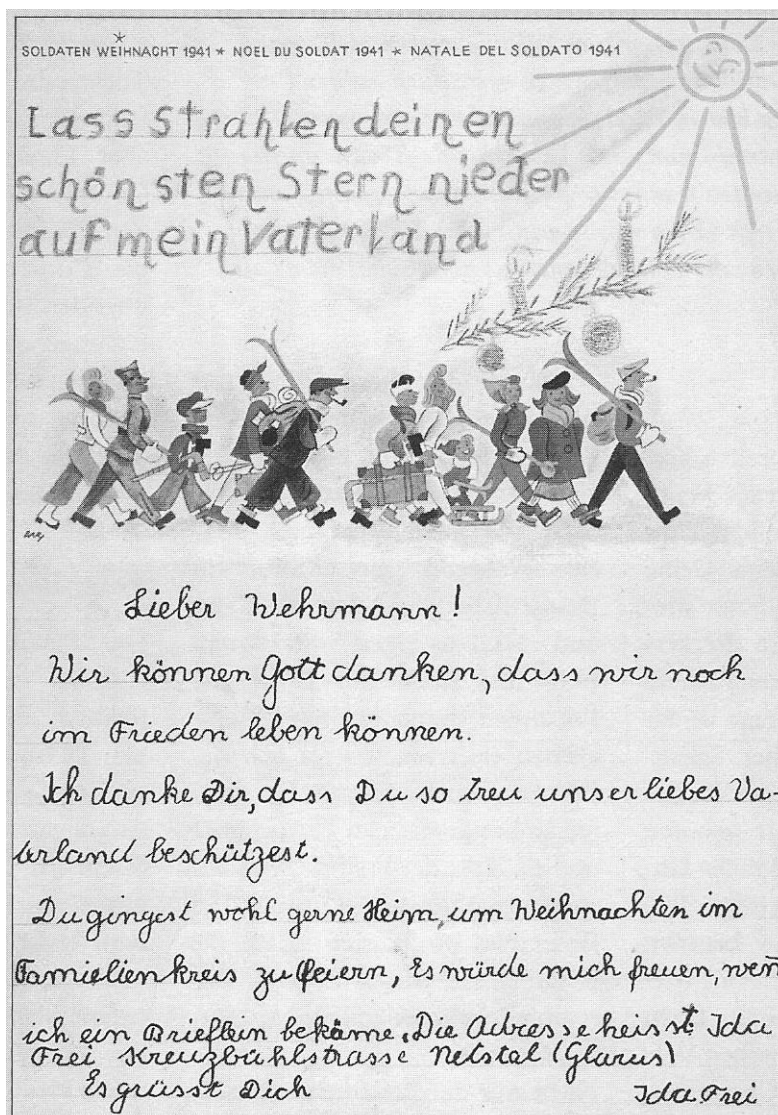 SOLDATEN WEIHNACHT 1941 * NOEL DU SOLDAT 1941 * NATALE DEL SOLDATO 1941
Lass Strahlen deinen
schönsten Stern nieder
auf mein Vaterland
Lieber Wehrmann!
Wir können Gott danken, dass wir noch
im Frieden leben können.
Ich danke Dir, dass Du so treu unser liebes Va-
terland beschützest.
Du gingest wohl gerne Heim, um Weihnachten im
Familienkreis zu feiern, Es würde mich freuen, weñ
ich ein Brieflein bekäme. Die Adresse heisst Ida
Frei Kreuzbühlstrasse Netstal (Glarus)
Es grüsst Dich Ida Frei